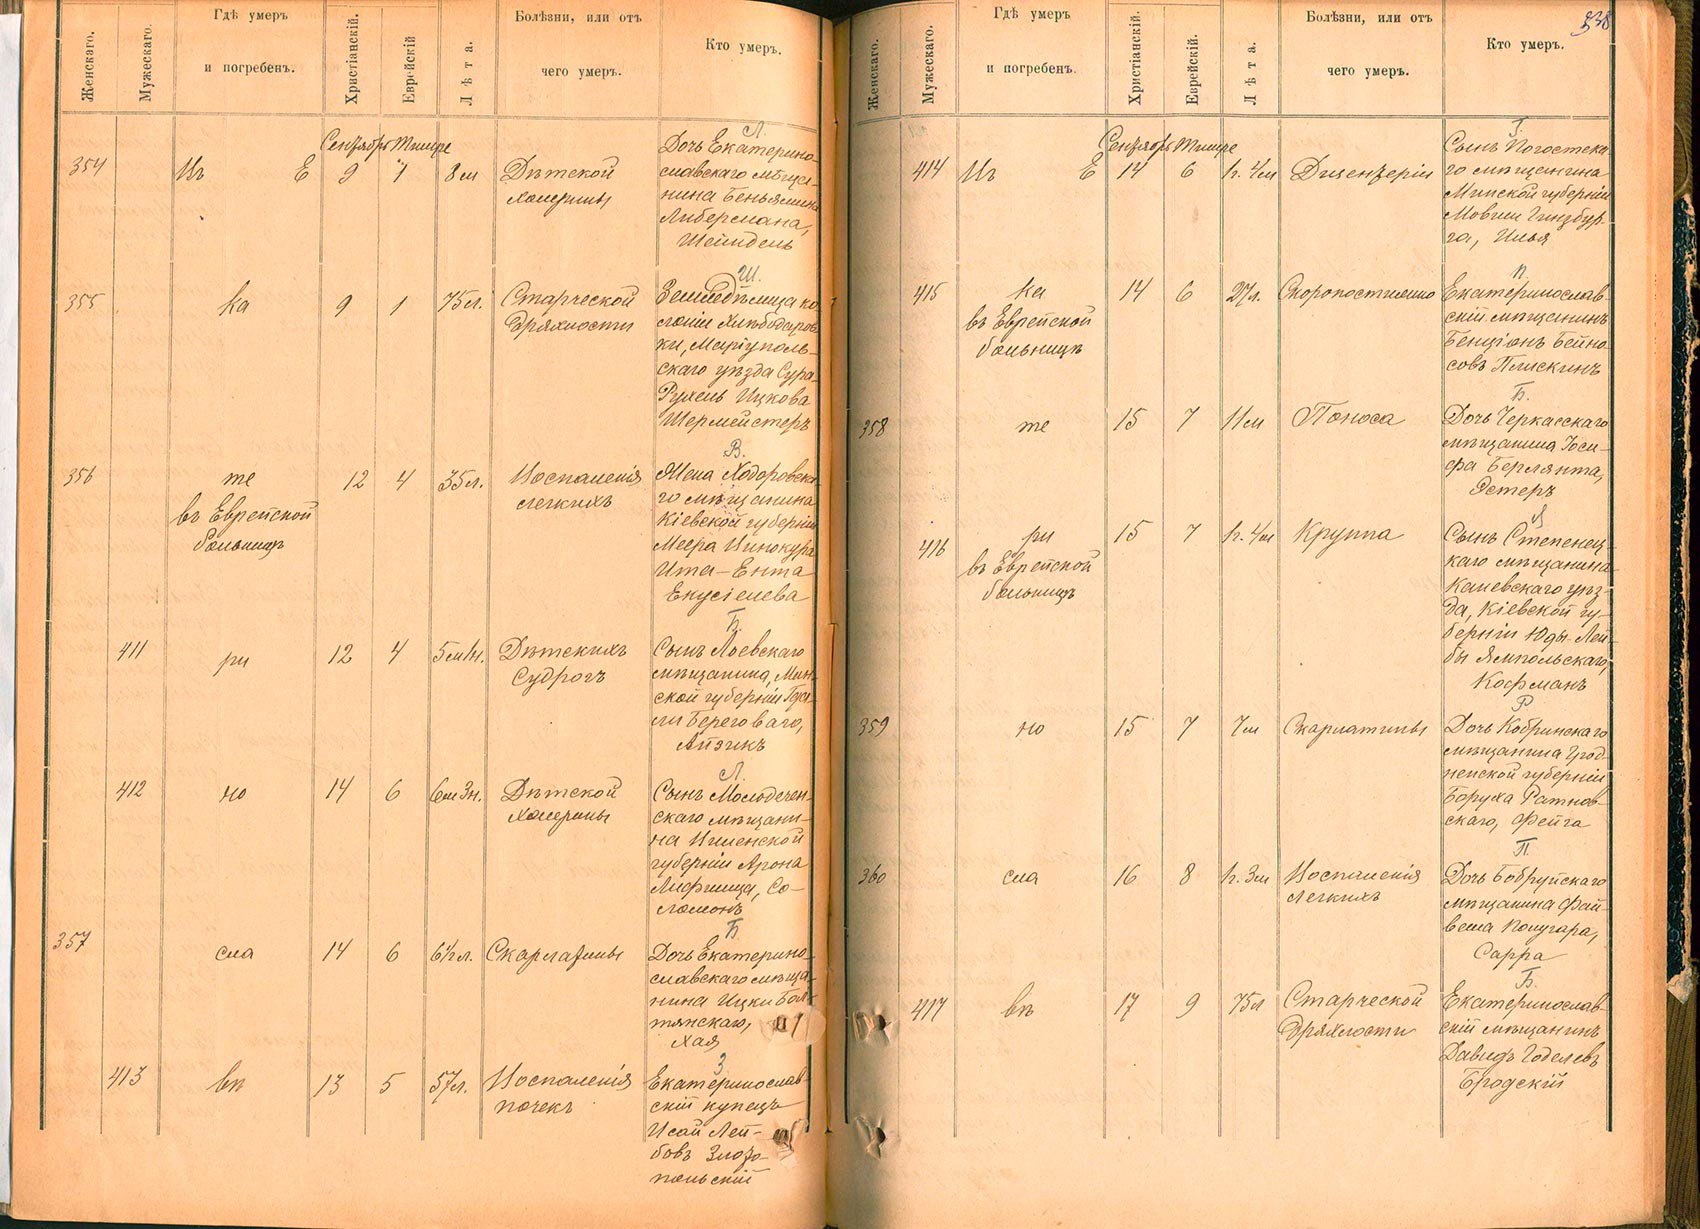 Женскаго.
Мужескаго
Гдѣ умеръ
и погребенъ.
Христіанскій.
Еврейскій
Лѣта.
Болѣзни, или отъ
чего умеръ.
Кто умеръ.
Сентябрь Тишре
354
Въ Е
9
1
8 м
Дѣтской
холерины
Л.
Дочь Екатерино-
славскаго мѣща-
нина Беньямина
Либермана,
Шейндель
355
ка
9
1
75 л.
Старческой
дряхлости
Ш.
Земледѣлица ко-
лоніи Хлѣбодаров-
ки, Маріуполь-
скаго уѣзда Сура-
Рухель Ицкова
Шермейстеръ
356
те
въ Еврейской
больницѣ
12
4
35 л.
Воспаленія
легкихъ
В.
Жена Ходоровска-
го мѣщанина
Кіевской губерніи
Меера Винокура
Ита-Ента
Екусіелева
411
ри
12
4
5 м 1 н.
Дѣтскихъ
судрогъ
Б.
Сынъ Лоевскаго
мѣщанина, Мин-
ской губерніи
Берегового,
Айзикъ
412
но
14
6
6 м 3 н.
Дѣтской
холерины
Л.
Сынъ Молодечен-
скаго мѣщани-
на Виленской
губерніи Арона
Лифшица, Со-
ломонъ
357
сла
14
6
6½ л.
Скарлатины
Б
Дочь Екатерино-
славскаго мѣща-
нина Ицки
Хая
413
вѣ
13
5
57 л.
Воспаленія
почекъ
З
Екатеринослав-
скій купецъ
Исай Лей-
бовъ Злото-
польскій
Женскаго.
Мужескаго.
Гдѣ умеръ
и погребенъ.
Христіанскій.
Еврейскій.
Лѣта.
Болѣзни, или отъ
чего умеръ.
Кто умеръ.
Сентябрь Тишре
414
Въ Е
14
6
1 г. 4 м
Дизентеріи
Г.
Сынъ Погостска-
го мѣщанина
Минской губерніи
Мовши Гинзбур-
га, Илья
415
ка
въ Еврейской
больницѣ
14
6
27 л.
Скоропостижно
П
Екатеринослав-
скій мѣщанинъ
Бенціонъ Бейно-
совъ Плискинъ
358
те
15
7
11 м
Поноса
Б.
Дочь Черкасскаго
мѣщанина Іоси-
фа Берлянта,
Эстеръ
416
ри
въ Еврейской
больницѣ
15
7
1 г. 4 м
Круппа
Я
Сынъ Степенец-
каго мѣщанина
Каневскаго уѣз-
да, Кіевской гу-
берніи Юды-Лей-
бы Ямпольскаго,
Кофманъ
359
но
15
7
7 м
Скарлатины
Р
Дочь Кобринскаго
мѣщанина Грод-
ненской губерніи
Боруха Ратнов-
скаго, Фейга
360
сла
16
8
1 г. 3 м
Воспаленія
легкихъ
П
Дочь Бобруйскаго
мѣщанина Фай-
веша Полугара,
Сарра
417
вѣ
17
9
75 л
Старческой
дряхлости
Б.
Екатеринослав-
скій мѣщанинъ
Давидъ Годелевъ
Бродскій